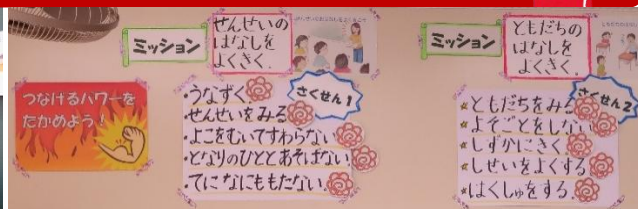 つなげるパワーを
たかめよう!
ミッション
せんせいの
はなしを
よくきく。
さくせん1
・うなずく。
・せんせいをみる
・よこをむいてすわらない
・となりのひととあそばない
・てになにももたない。
ミッション
ともだちの
はなしを
よくきく。
さくせん2
★ともだちをみる
★よそごとをしない
★しずかにきく。
★しせいをよくする
★はくしゅをする。